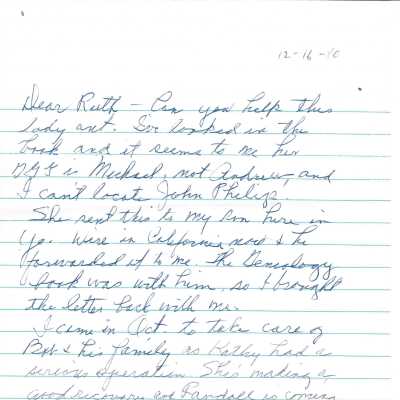 12-16-10
Dear Ruth - Can you help this
lady out. I've looked in the
book and it seems to me her
is Michael, not Andrew, and
I can't locate John Philip.
She sent this to my son here in
We're in California now & he
forwarded it to me. The Geneology
book was with him, so I brought
the letter back with me.
I came in Oct. to take care of
Bob & his family as Kathy had a
serious operation. She's making a
good recovery and Randall is coming